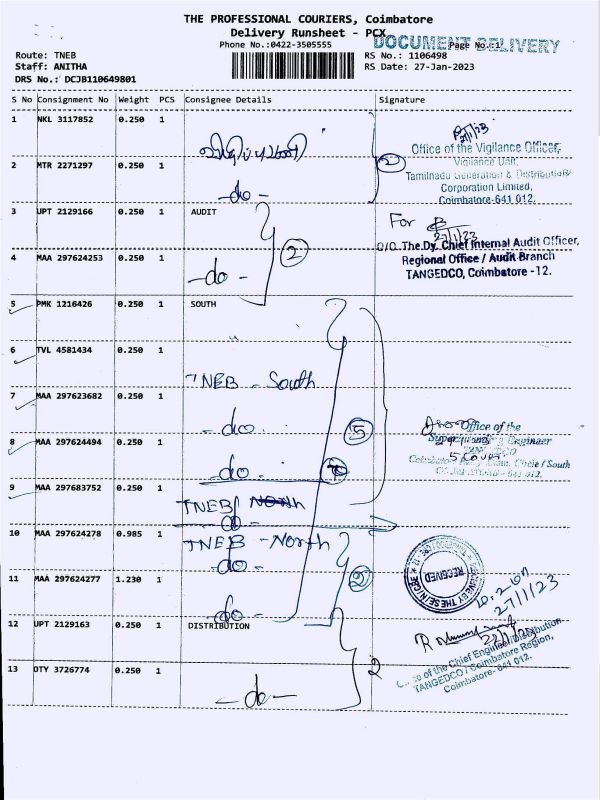 THE PROFESSIONAL COURIERS, Coimbatore
Delivery Runsheet - PCX
DOCUMENT DELIVERY
Phone No.:0422-3505555
Page No.:1
Route: TNEB
RS No.: 1106498
Staff: ANITHA
RS Date: 27-Jan-2023
DRS No.: DCJB110649801
S No Consignment No Weight PCS Consignee Details Signature
1 NKL 3117852 0.250 1
27/1/23
Office of the Vigilance Officer,
Vigilance Unit,
2 MTR 2271297 0.250 1
2
Tamilnadu Generation & Distribution
Corporation Limited,
-do-
Coimbatore-641 012.
3 UPT 2129166 0.250 1 AUDIT
For
27/1/23
O/O. The Dy. Chief Internal Audit Officer,
4 MAA 297624253 0.250 1
2
Regional Office / Audit Branch
-do-
TANGEDCO, Coimbatore - 12.
5 PMK 1216426 0.250 1 SOUTH
6 TVL 4581434 0.250 1
TNEB - South
7 MAA 297623682 0.250 1
-do-
5
Office of the
8 MAA 297624494 0.250 1
Superintending Engineer
5 Cover
-do-
Circle / South
9 MAA 297683752 0.250 1
TNEB/ North
-do-
10 MAA 297624278 0.985 1
TNEB - North
-do-
11 MAA 297624277 1.230 1
2
RECEIVED
27/1/23
-do-
12 UPT 2129163 0.250 1 DISTRIBUTION
Office of the Chief Engineer/Distribution
13 OTY 3726774 0.250 1
2
TANGEDCO / Coimbatore Region,
Coimbatore- 641 012.
-do-